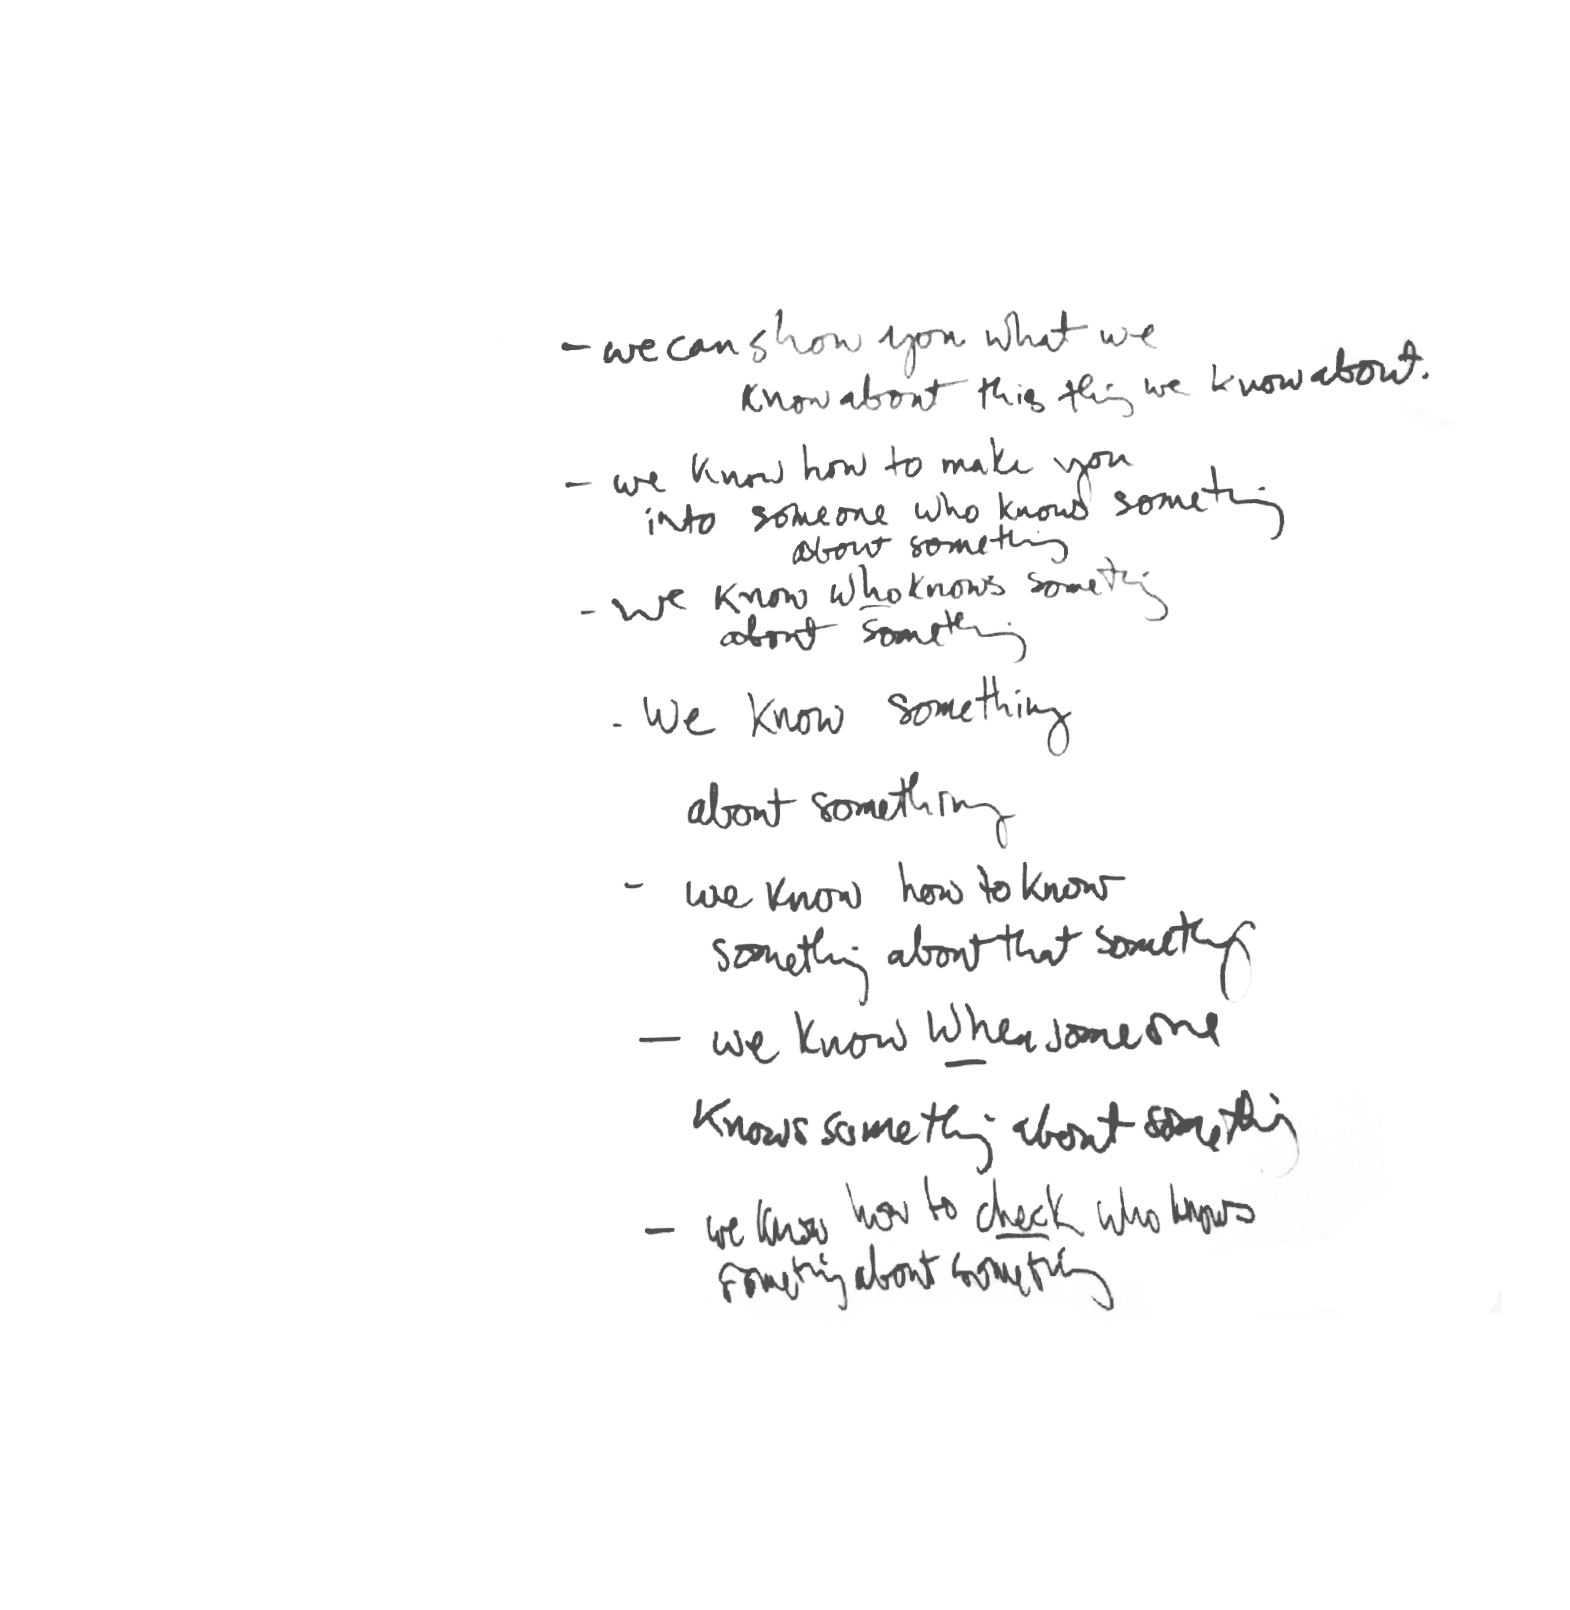 - we can show you what we
know about this thing we know about.
- we know how to make you
into someone who knows something
about something
- we know who knows something
about something
- We know something
about something
- we know how to know
something about that something
- we know when someone
knows something about something
- we know how to check who knows
something about something